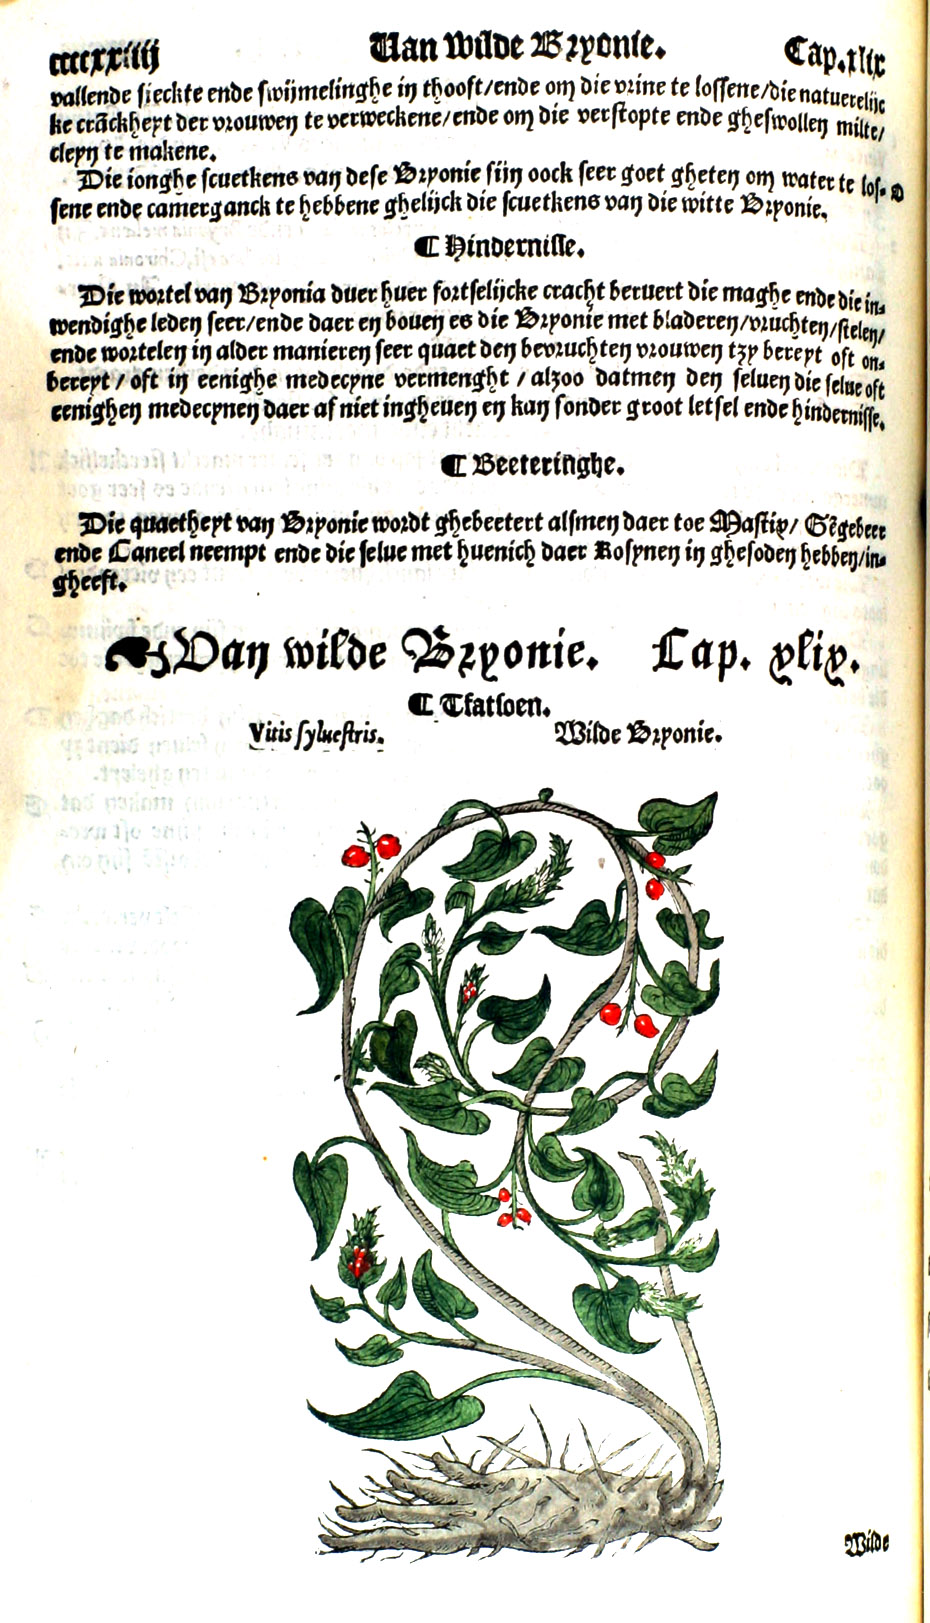 ccccxxiiij Van wilde Bryonie. Cap.xlix
vallende sieckte ende swijmelinghe in thooft/ende om die vrine te lossene/die natuerelijc
ke cranckheyt der vrouwen te verweckene/ende om die verstopte ende gheswollen milte/
cleyn te makene.
Die ionghe scuetkens van dese Bryonie sijn oock seer goet gheten om water te los- D
sene ende camerganck te hebbene ghelijck die scuetkens van die witte Bryonie.
¶ Hindernisse.
Die wortel van Bryonia duer huer fortselijcke cracht beruert die maghe ende die in-
wendighe leden seer/ende daer en bouen es die Bryonie met bladeren/vruchten/stelen/
ende wortelen in alder manieren seer quaet den bevruchten vrouwen tzy bereyt oft on-
bereyt / oft in eenighe medecyne vermenght / alzoo datmen den seluen die selue oft
eenighen medecynen daer af niet ingheuen en kan sonder groot letsel ende hindernisse.
¶ Beeteringhe.
Die quaetheyt van Bryonie wordt ghebeetert alsmen daer toe Mastix/ Gēgebeer
ende Caneel neempt ende die selue met huenich daer Rosynen in ghesoden hebben/in-
gheeft.
☙Van wilde Bryonie. Cap. xlix.
¶ Tfatsoen.
Vitis syluestris. Wilde Bryonie.
Wilde